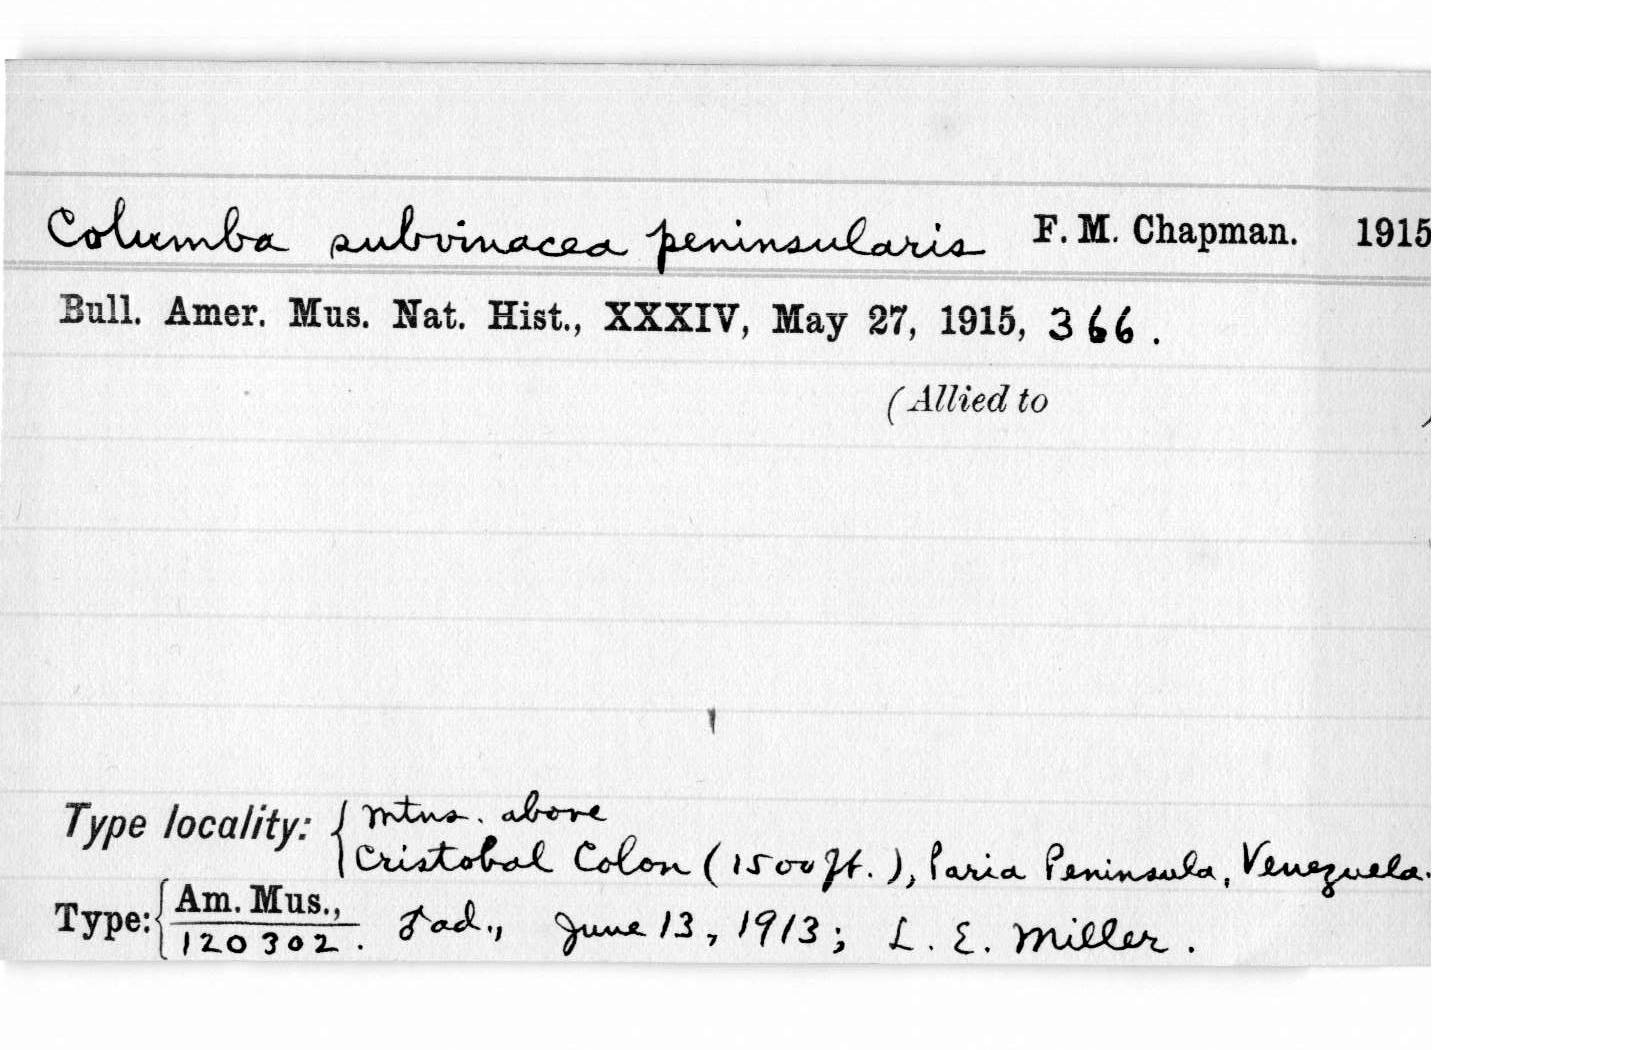 Columba subvinacea peninsularis F. M. Chapman. 1915
Bull. Amer. Mus. Nat. Hist., XXXIV, May 27, 1915, 366.
(Allied to )
Type locality: { Mtns. above
Cristobal Colon (1500 ft.), Paria Peninsula, Venezuela.
Type: { Am. Mus.,
120302. ♂ad., June 13, 1913; L. E. Miller.